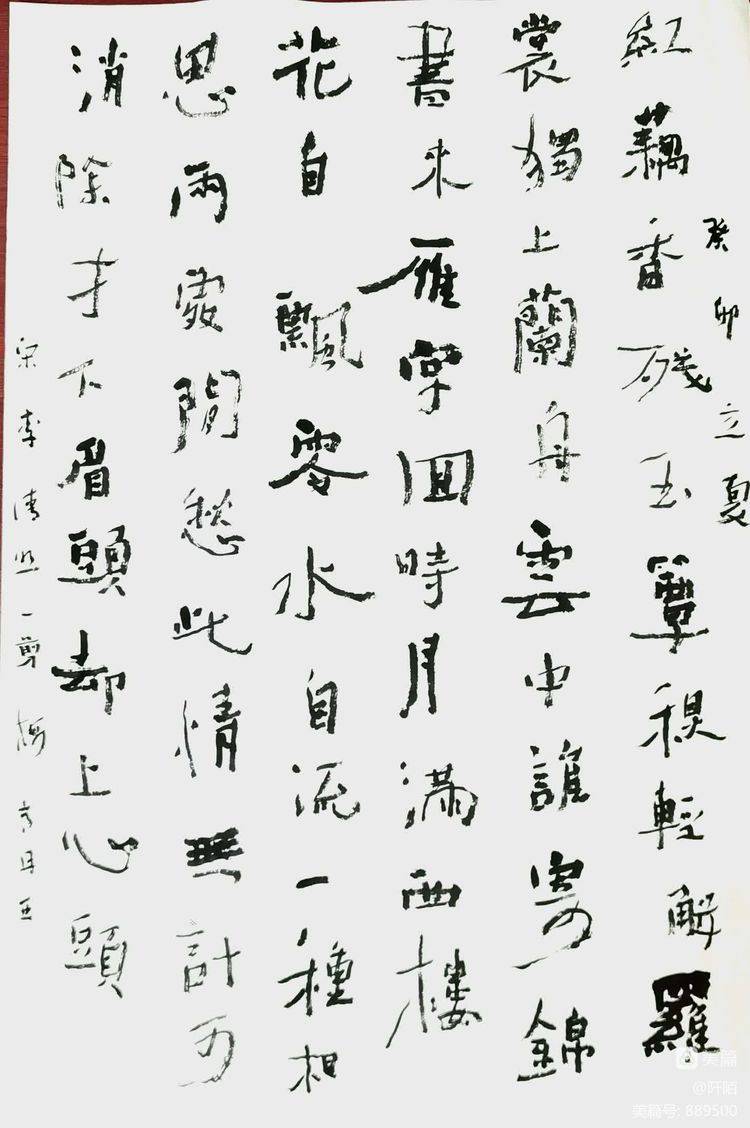 癸卯立夏
紅藕香殘玉簟秋輕解羅
裳獨上蘭舟雲中誰寄錦
書來雁字回時月滿西樓
花自飄零水自流一種相
思兩處閒愁此情無計可
消除才下眉頭却上心頭
宋李清照一剪梅
美篇
@阡陌
美篇号: 889500